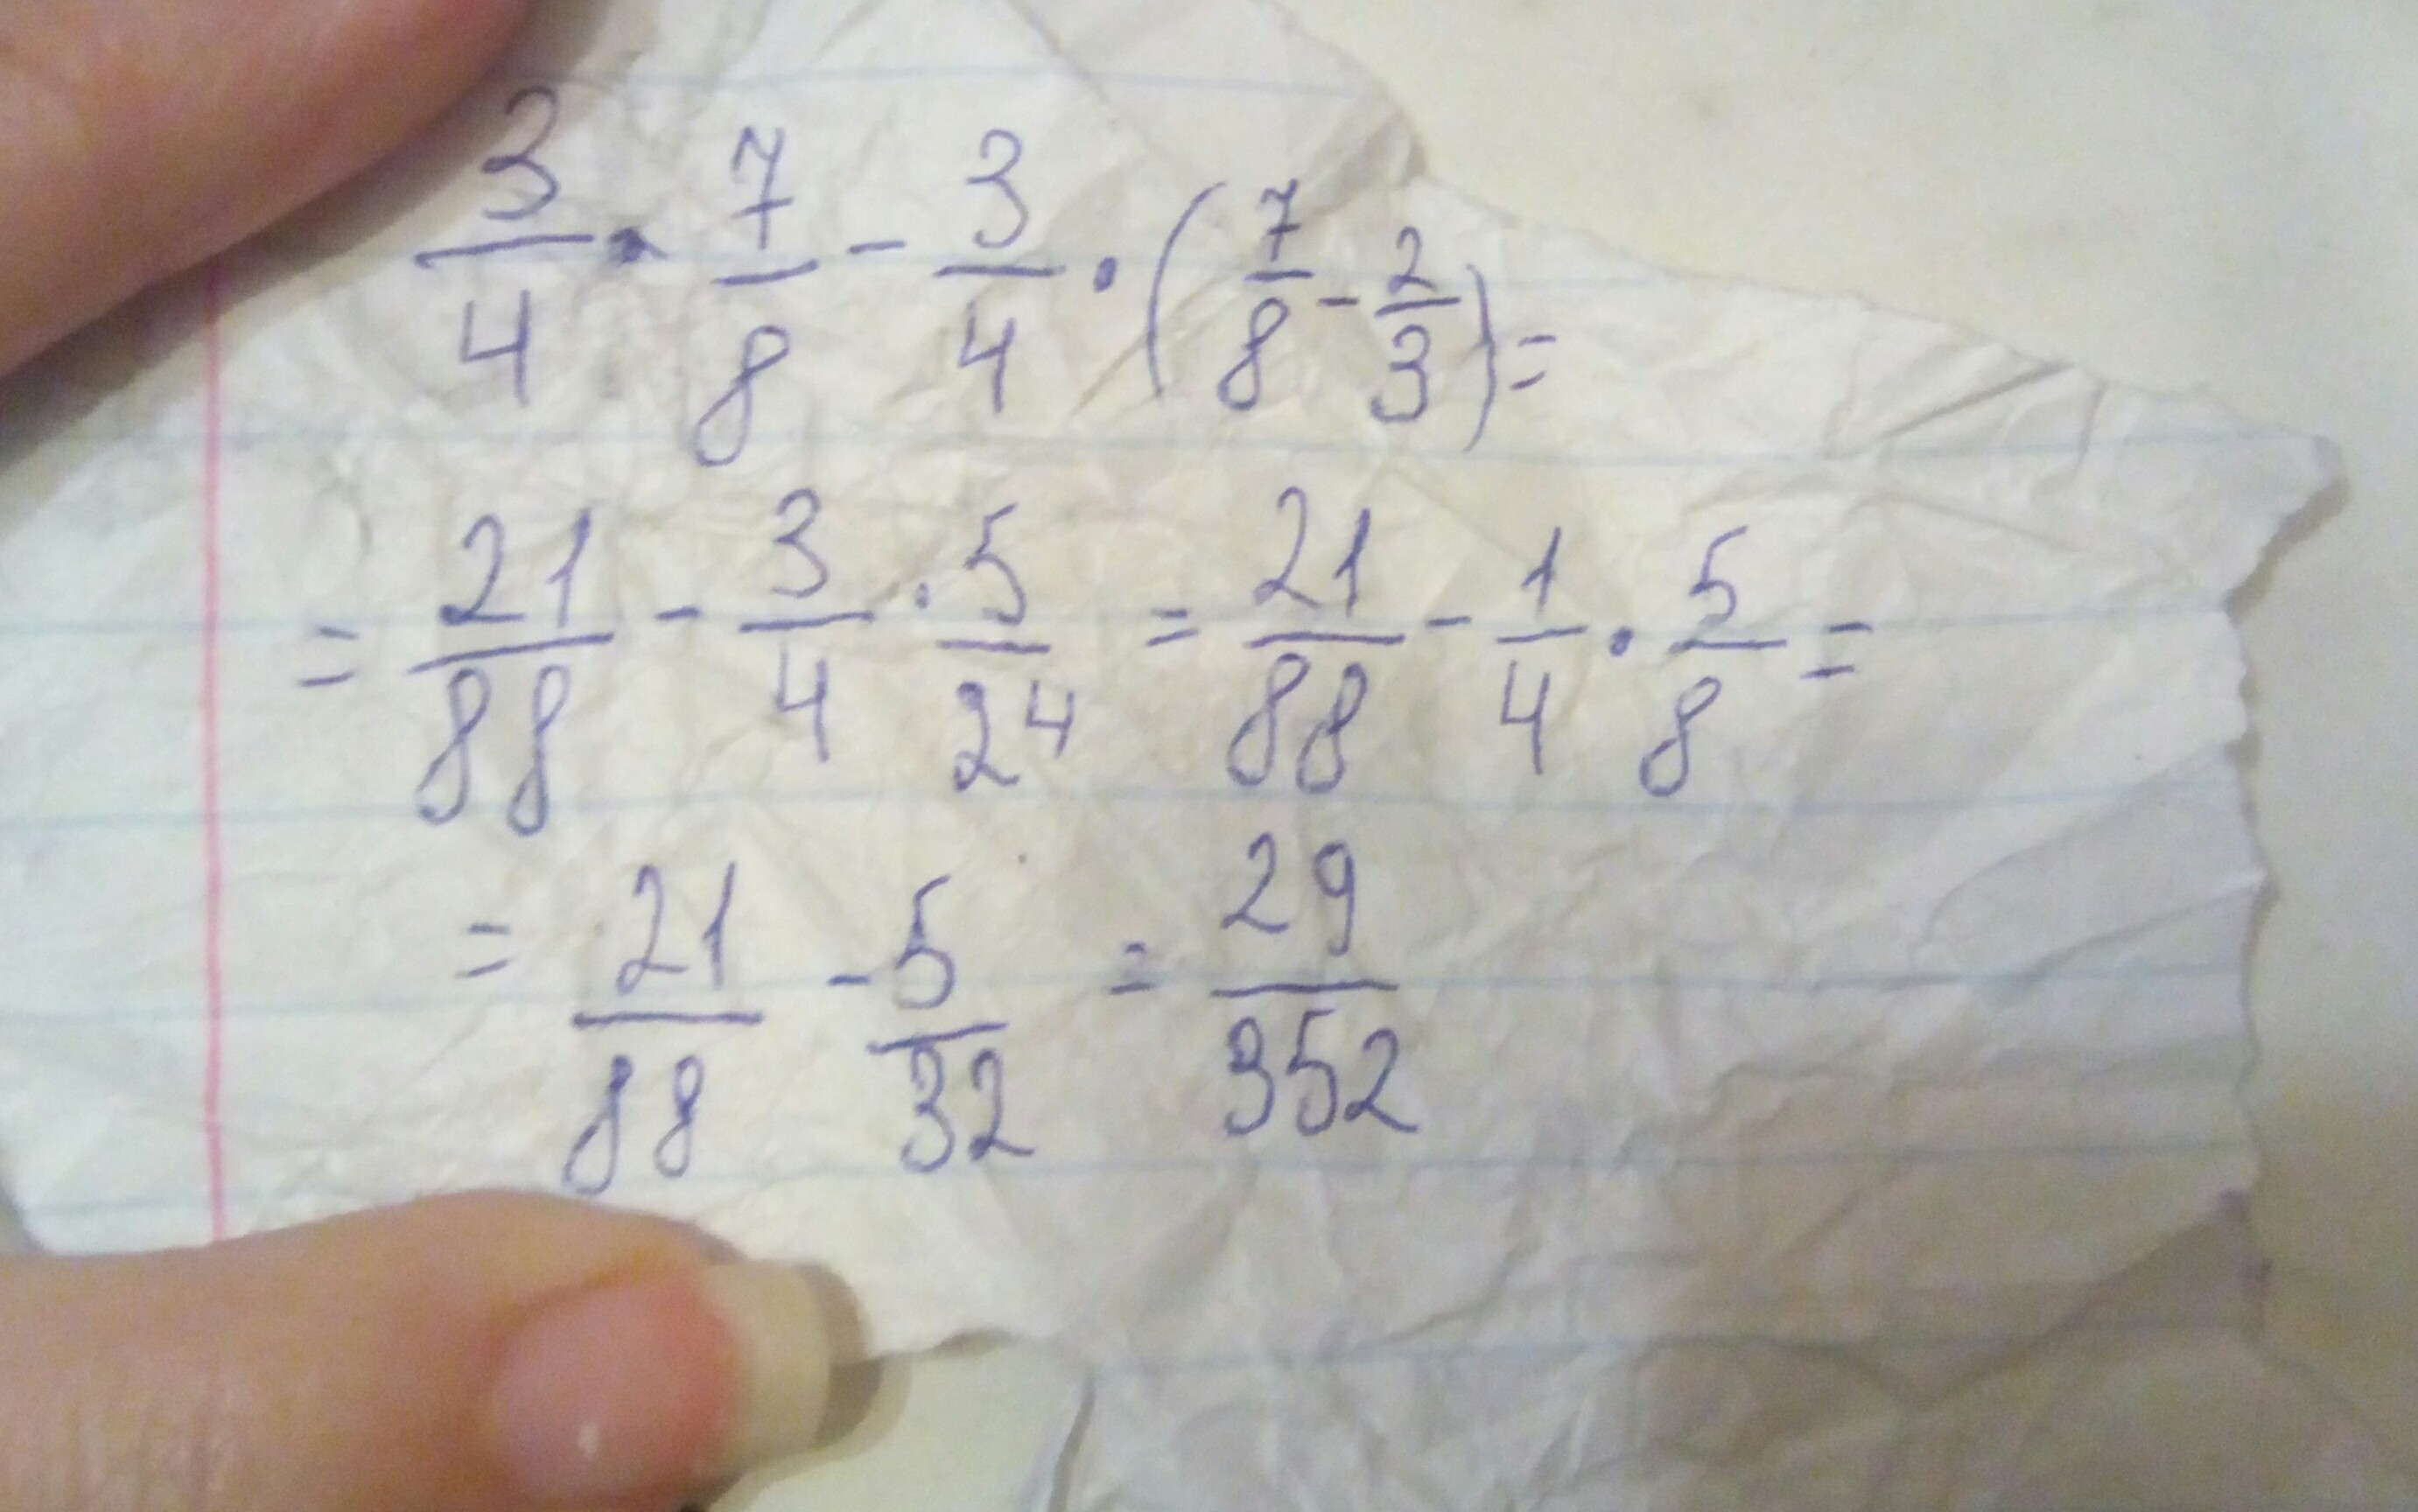 3/4 · 7/8 - 3/4 · (7/8 - 2/3) =
= 21/88 - 3/4 · 5/24 = 21/88 - 1/4 · 5/8 =
= 21/88 - 5/32 = 29/352